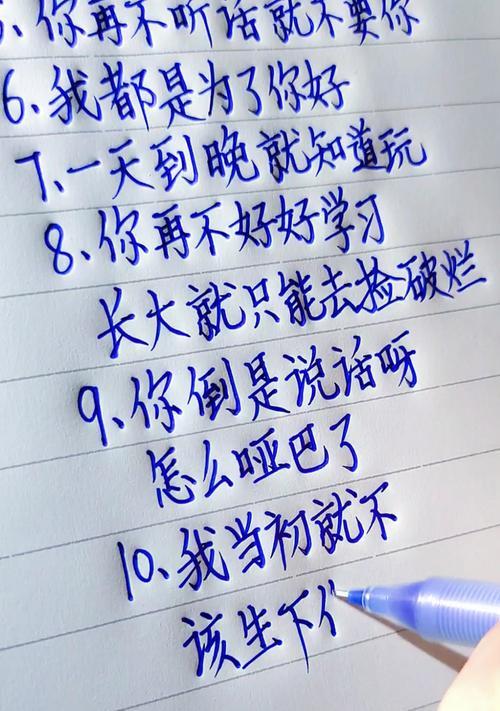 5、你再不听话就不要你
6、我都是为了你好
7、一天到晚就知道玩
8、你再不好好学习
长大就只能去捡破烂
9、你倒是说话呀
怎么哑巴了
10、我当初就不
该生下